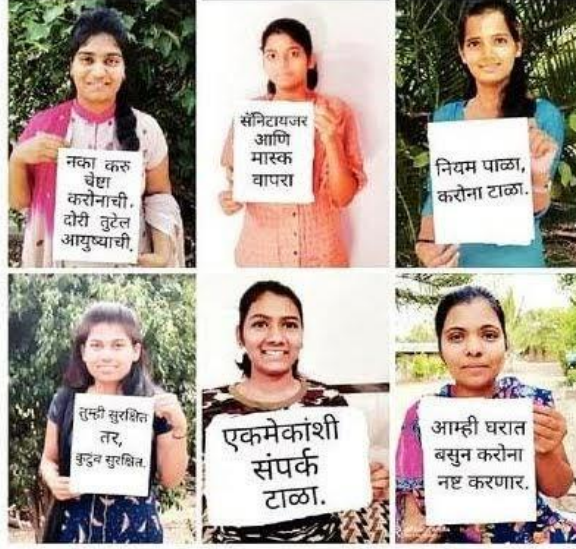 नका करु
चेष्टा
करोनाची.
दोरी तुटेल
आयुष्याची.
सॅनिटायजर
आणि
मास्क
वापरा
नियम पाळा,
करोना टाळा.
तुम्ही सुरक्षित
तर,
कुटुंब सुरक्षित.
एकमेकांशी
संपर्क
टाळा.
आम्ही घरात
बसुन करोना
नष्ट करणार.